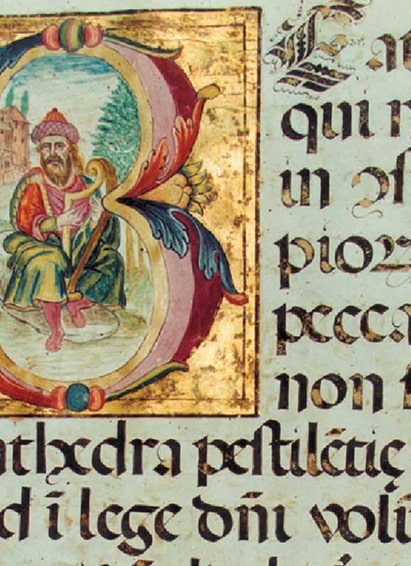 B
Ea
qui n
in ꝯſ
pioꝝ
pecca
non ſ
athedra peſtilētie
d ī lege dn̄i volu